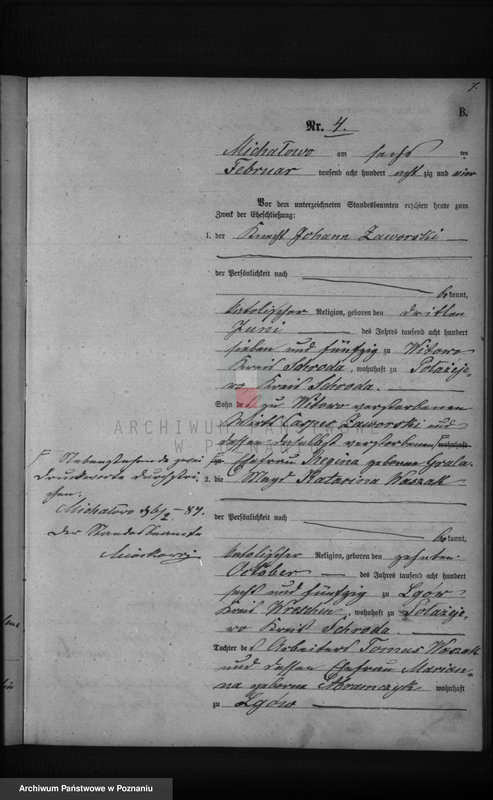 7.
B.
Nr. 4.
Michalowo am sechs ten
Februar tausend acht hundert acht zig und vier
Vor dem unterzeichneten Standesbeamten erschien heute zum
Zweck der Eheschließung:
1. der Knecht Johann Zaworski
der Persönlichkeit nach
bekannt,
katolischer Religion, geboren den dritten
Juni des Jahres tausend acht hundert
sieben und fünfzig zu Witowo
Kreis Schroda, wohnhaft zu Polazeje-
wo Kreis Schroda.
Sohn des zu Witowo verstorbenen
Wirths Casper Zaworski und
dessen zuletzt verstorbenen wohnhaft
zu Ehefrau Regina geborne Gorala.
2. die Magd Katarina Waszak
der Persönlichkeit nach
bekannt,
katolischer Religion, geboren den zehnten
October des Jahres tausend acht hundert
sechs und fünfzig zu Lgow
Kreis Wreschen, wohnhaft zu Polazeje-
wo Kreis Schroda.
Tochter des Arbeiters Tomas Waszak
und dessen Ehefrau Marian-
na geborne Abramczyk wohnhaft
zu Lgow
Nebenstehende zwei
Druckworte durchstri-
chen.
Michalowo d 6/2. 84.
Der Standesbeamte
ARCHIWUM PAŃSTWOWE
W POZNANIU
Archiwum Państwowe w Poznaniu